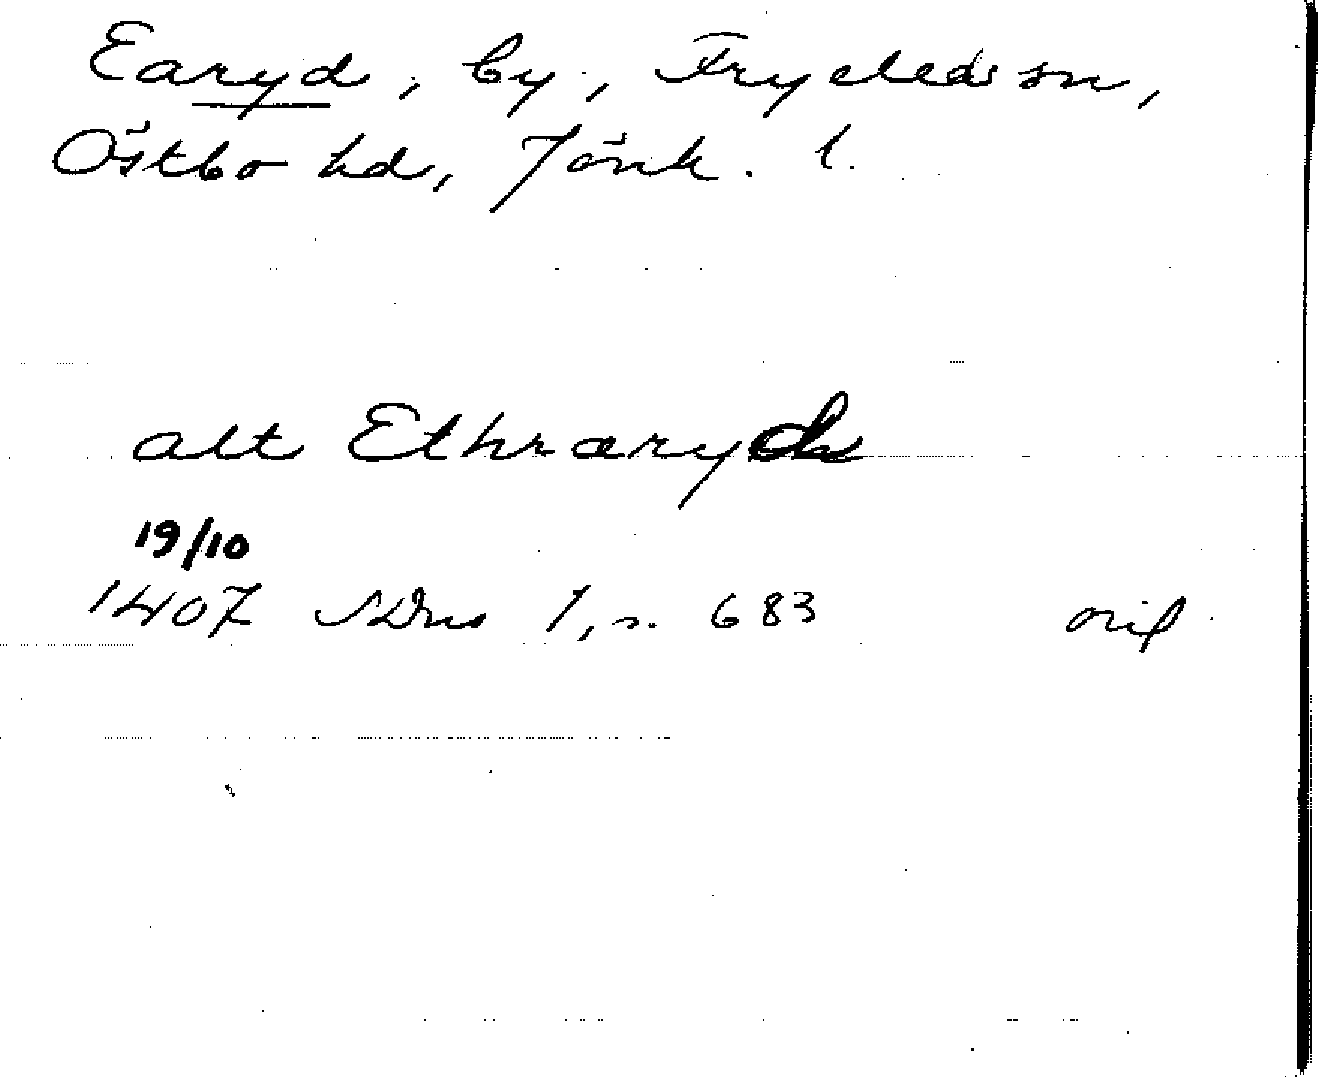 Earyd, by, Fryeleds sn,
Östbo hd, Jönk. l.
alt Ethræryd
19/10
1407 SDns 1, s. 683 orig